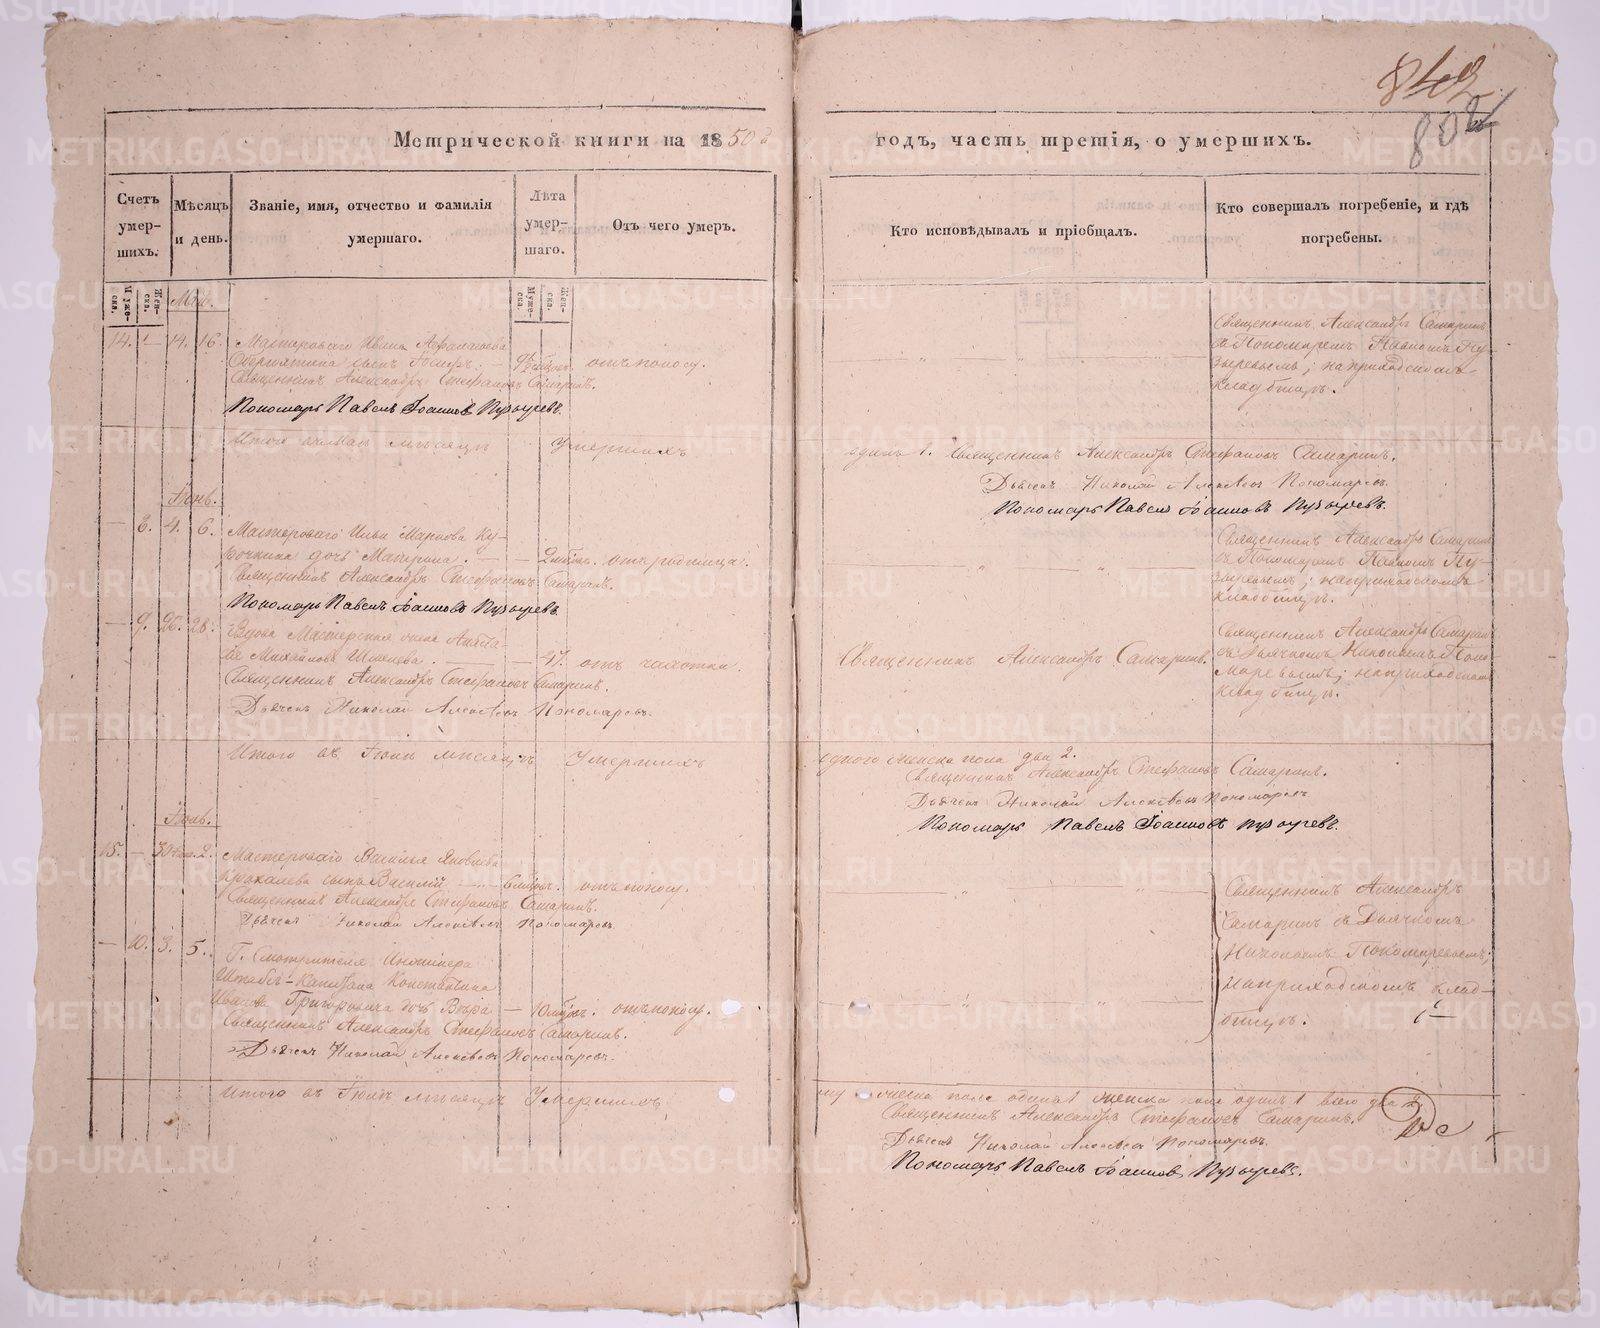 842
802
Метрической книги на 1850й
годъ, часть третія, о умершихъ.
Счетъ умер-шихъ.
Мѣсяцъ и день.
Званіе, имя, отчество и фамилія умершаго.
Лѣта умер-шаго.
Отъ чего умеръ.
Кто исповѣдывалъ и пріобщалъ.
Кто совершалъ погребеніе, и гдѣ погребены.
Муже-ска.
Жен-ска.
Муже-ска.
Жен-ска.
Май.
14. — 14. 16. Мастероваго Ивана
сынъ отъ поносу.
Священникъ Александръ Стефановъ Самаринъ.
Пономарь Павелъ Іоанновъ Пузыревъ.
Священникъ Александръ Самаринъ
съ Пономаремъ Павломъ Пу-
зыревымъ; на приходскомъ
кладбищѣ.
Итого въ маѣ мѣсяцѣ Умершихъ
одинъ 1. Священникъ Александръ Стефановъ Самаринъ.
Дьячекъ Николай Алексѣевъ Пономаревъ.
Пономарь Павелъ Іоанновъ Пузыревъ.
Іюнь.
— 8. 4. 6. Мастероваго Ильи Маркова Ку-
рочкина дочь — 2 отъ родимца.
Священникъ Александръ Стефановъ Самаринъ.
Пономарь Павелъ Іоанновъ Пузыревъ
Священникъ Александръ Самаринъ
съ Пономаремъ Павломъ Пу-
зыревымъ; на приходскомъ
кладбищѣ.
— 9. 26. 28. Вдова Мастерская жена
Михайлова Шмелева. — 47. отъ чахотки.
Священникъ Александръ Стефановъ Самаринъ.
Дьячекъ Николай Алексѣевъ Пономаревъ.
Священникъ Александръ Самаринъ.
Священникъ Александръ Самаринъ
съ Дьячкомъ Николаемъ Поно-
маревымъ; на приходскомъ
кладбищѣ.
Итого въ Іюнѣ мѣсяцѣ Умершихъ
одного женска пола два 2.
Священникъ Александръ Стефановъ Самаринъ.
Дьячекъ Николай Алексѣевъ Пономаревъ
Пономарь Павелъ Іоанновъ Пузыревъ.
Іюль.
15. — 30 2. Мастероваго Василья Яковлева
сынъ Василій — отъ поносу.
Священникъ Александръ Стефановъ Самаринъ.
Дьячекъ Николай Алексѣевъ Пономаревъ
— 10. 3. 5. Г. Смотрителя Инженера
Штабсъ-Капитана Константина
Иванова Григоровича дочь Вѣра — 10 отъ поносу.
Священникъ Александръ Стефановъ Самаринъ.
Дьячекъ Николай Алексѣевъ Пономаревъ.
Священникъ Александръ
Самаринъ съ Дьячкомъ
Николаемъ Пономаревымъ;
на приходскомъ клад-
бищѣ.
Итого въ Іюлѣ мѣсяцѣ Умершихъ
мужеска пола одинъ 1 женска пола одинъ 1 всего два 2.
Священникъ Александръ Стефановъ Самаринъ.
Дьячекъ Николай Алексѣевъ Пономаревъ.
Пономарь Павелъ Іоанновъ Пузыревъ.
METRIKI.GASO-URAL.RU